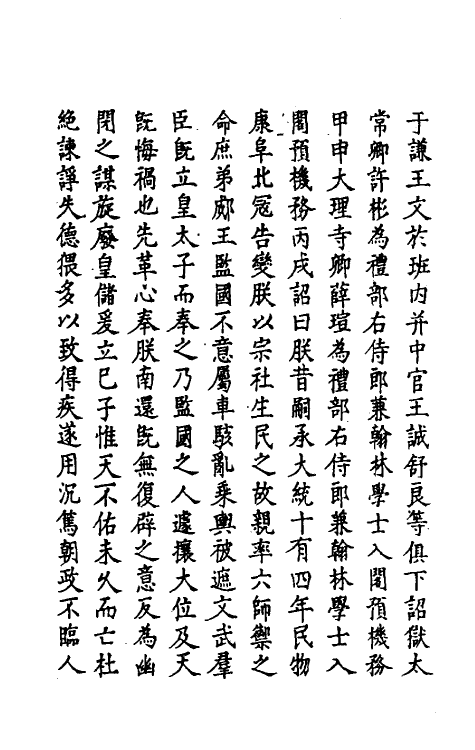 于謙王文於班内并中官王誠舒良等俱下詔獄太
常卿許彬為禮部右侍郎兼翰林學士入閣預機務
甲申大理寺卿薛瑄為禮部右侍郎兼翰林學士入
閣預機務丙戌詔曰朕昔嗣承大統十有四年民物
康阜北寇告變朕以宗社生民之故親率六師禦之
命庶弟郕王監國不意屬車駭亂乘輿被遮文武羣
臣既立皇太子而奉之乃監國之人遽攘大位及天
既悔禍也先革心奉朕南還既無復辟之意反為幽
閉之謀旋廢皇儲爰立已子惟天不佑未久而亡杜
絶諫諍失德猥多以致得疾遂用沉篤朝政不臨人